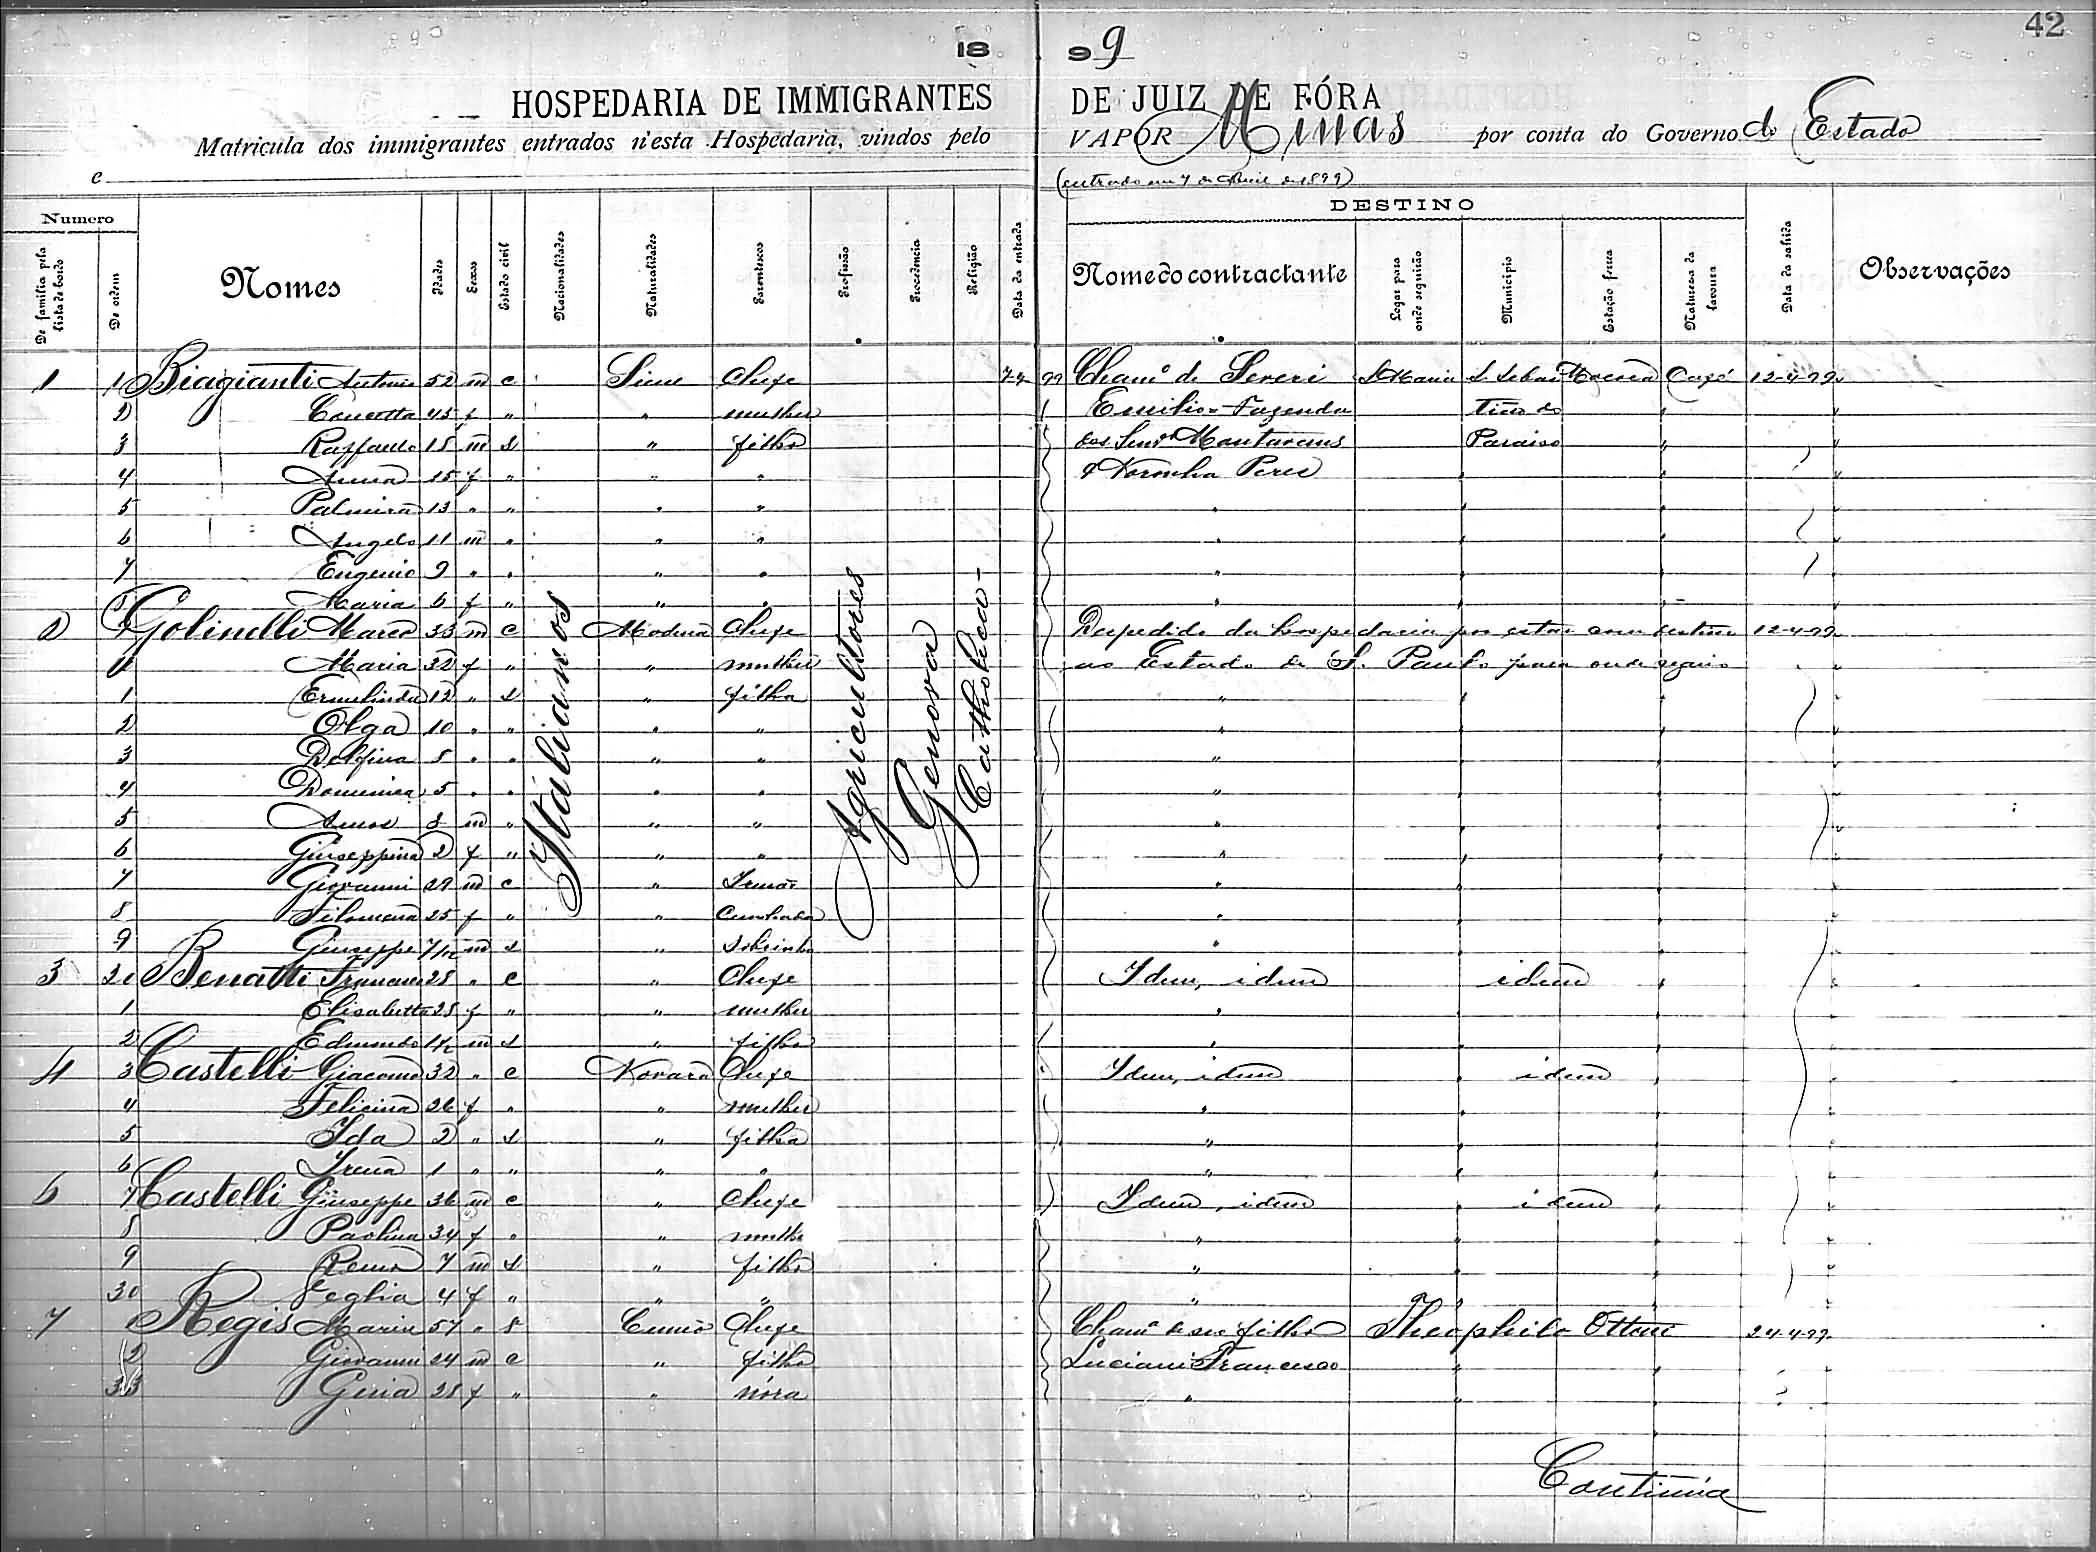 42
18 99
HOSPEDARIA DE IMMIGRANTES DE JUIZ DE FÓRA
Matricula dos immigrantes entrados n'esta Hospedaria, vindos pelo VAPOR Minas por conta do Governo do Estado
e (entrado em 7 de Abril de 1899)
Numero DESTINO
De familia pela lista de bordo De ordem Nomes Idades Sexos Estado civil Nacionalidades Naturalidades Parentescos Profissão Procedencia Religião Data da entrada Nome do contractante Logar para onde seguirão Municipio Estação ferrea Naturesa da lavoura Data da sahida Observações
Italianos Agricultores Genova Catholica
1 1 Biagianti Antonio 52 m c Siene Chefe 7-4-99 Cham.º de Severi S. Maria S. Sebas Mococa Café 12-4-99
2 Concetta 45 f " " mulher Emilio Fazenda tião do "
3 Raffaello 18 m s " filho dos Snrs Paraiso "
4 Anna 15 f " " " & Noronha Peres " "
5 Palmira 13 " " " " " " "
6 Angelo 11 m " " " " " "
7 Eugenio 9 " " " " " " "
8 Maria 6 f " " " " " "
2 9 Golinelli Marco 35 m c Modena Chefe Despedido da hospedaria por estar com destino 12-4-99
Maria 32 f " " mulher ao Estado de S. Paulo para onde seguio
1 Ermelinda 12 " s " filha " " "
2 Olga 10 " " " " " " "
3 Delfina 8 " " " " " " "
4 Domenica 5 " " " " " " "
5 m " " " " " "
6 Giuseppina 2 f " " " " " "
7 Giovanni 29 m c " Irmão " " "
8 Filomena 25 f " " Cunhada " " "
9 Giuseppe 7/12 m s " Sobrinho " " "
3 20 Benatti 28 " c " Chefe Idem, idem idem "
1 Elisabetta 28 f " " mulher " " "
2 Edmondo m s " filho " " "
4 3 Castelli Giacomo 32 " c Novara Chefe Idem, idem idem "
4 Felicina 26 f " " mulher " " "
5 Ida 2 " s " filha " " "
6 Irena 1 " " " " " " "
6 7 Castelli Giuseppe 36 m c " Chefe Idem, idem idem "
8 Paolina 34 f " " mulhe " " "
9 Remo 7 m s " filho " " "
30 Veglia 4 f " " " " " "
7 1 Regis Maria 57 " Cuneo Chefe Cham.º de seu filho Theophilo Ottoni 24-4-99
2 Giovanni 24 m c " filho Luciani Francesco " "
33 28 f " " nóra " " "
Continúa